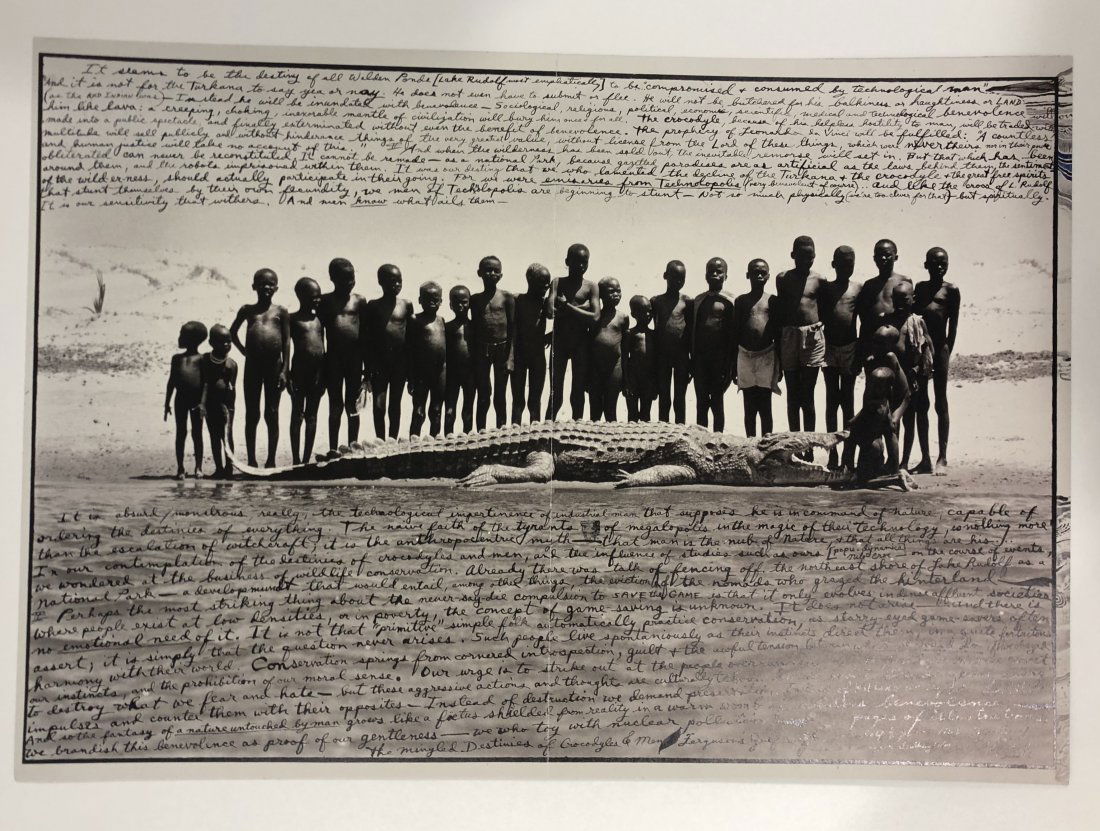 It seems to be the destiny of all Walden Ponds [Lake Rudolf most emphatically] to be "compromised & consumed by technological man"
"And it is not for the Turkana to say yea or nay. He does not even have to submit or flee. He will not be butchered for his balkiness or haughtiness or LAND
(as the RED INDIAN was)— Instead he will be inundated with benevolence — Sociological, religious, political, economic, scientific, medical and technological benevolence
him like lava: a creeping, choking inexorable mantle of civilization will bury him once for all, The crocodyle, because of his helpless hostility to man, will be traded with
made into a public spectacle, and finally exterminated without even the benefit of benevolence. The prophecy of Leonardo da Vinci will be fulfilled: "A countless
multitude will sell publicly and without hindrance things of the very greatest value, without license from the Lord of these things, which were never theirs nor in their power,
and human justice will take no account of this." And when the wilderness has been sold out, the inevitable remorse will set in. But that which has been
obliterated can never be reconstituted. It cannot be remade — as a national Park, because gazetted paradises are as artificial as the laws behind them, the sentries
around them, and the robots imprisoned within them. It was our destiny that we who lamented the decline of the Turkana & the crocodyle & the great free spirits
of the wilderness, should actually participate in their going. For we were emissaries from Technolopolis (very benevolent of course).. And like the crocs of L. Rudolf
that stunt themselves by their own fecundity, we men of Technolopolis are beginning to stunt — Not so much physically (we're too clever for that) but spiritually.
It is our sensitivity that withers. And men know what ails them —
It is absurd, monstrous really, the technological impertinence of industrial man that supposes he is in command of nature, capable of
ordering the destinies of everything. The naive faith of the tyrants of megalopolis in the magic of their technology is nothing more
than the escalation of witchcraft; it is the anthropocentric myth — that man is the nub of Nature, & that all things are his.
In our contemplation of the destinies of crocodyles and men, and the influence of studies such as ours on the course of events,
we wondered at the business of wildlife conservation. Already there was talk of fencing off the northeast shore of Lake Rudolf as a
national Park — a development that would entail, among other things, the eviction of the nomads who grazed the hinterland —
Perhaps the most striking thing about the never-say-die compulsion to SAVE the GAME is that it only evolves in dense affluent societies.
Where people exist at low densities, or in poverty, the concept of game-saving is unknown. It does not arise — and there is
no emotional need of it. It is not that "primitive" simple folk automatically practice conservation, as starry-eyed game savers often
assert; it is simply that the question never arises. Such people live spontaneously as their instincts direct them in a quite
harmony with their world. Conservation springs from cornered introspection, guilt & the awful tension between
our instincts, and the prohibition of our moral sense. Our urge is to strike out at the people
to destroy what we fear and hate — but these aggressive actions and thought are culturally
impulses and counter them with their opposites — Instead of destruction we demand
And so the fantasy of a nature untouched by man grows like a foetus shielded from reality in a warm womb
we brandish this benevolence as proof of our gentleness — we who toy with nuclear
the Mingled Destinies of Crocodyles & Men